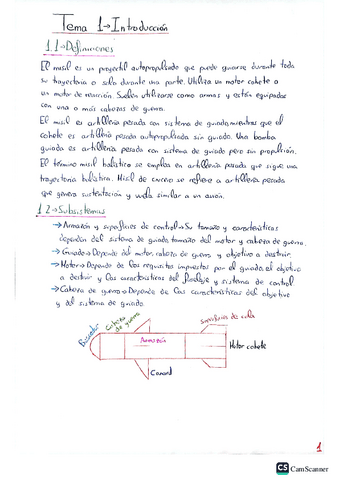 Tema 1→Introducción
1.1→Definiciones
El misil es un proyectil autopropulsado que puede guiarse durante toda
su trayectoria o solo durante una parte. Utiliza un motor cohete o
un motor de reacción. Suelen utilizarse como armas y están equipadas
con una o más cabezas de guerra.
El misil es artillería pesada con sistema de guiado, mientras que el
cohete es artillería pesada autopropulsada sin guiado. Una bomba
guiada es artillería pesada con sistema de guiado pero sin propulsión.
El término misil balístico se emplea en artillería pesada que sigue una
trayectoria balística. Misil de crucero se refiere a artillería pesada
que genera sustentación y vuela similar a un avión.
1.2→Subsistemas
→Armazón y superficies de control→Su tamaño y características
dependen del sistema de guiado, tamaño del motor y cabeza de guerra.
→Guiado→Depende del motor, cabeza de guerra y objetivo a destruir.
→Motor→Depende de los requisitos impuestos por el guiado, el objetivo
a destruir y las características del fuselaje y sistema de control
→Cabeza de guerra→Depende de las características del objetivo
y del sistema de guiado.
Buscador
Cabeza de guerra
Armazón
Superficies de cola
Motor cohete
Canard
1
CS CamScanner